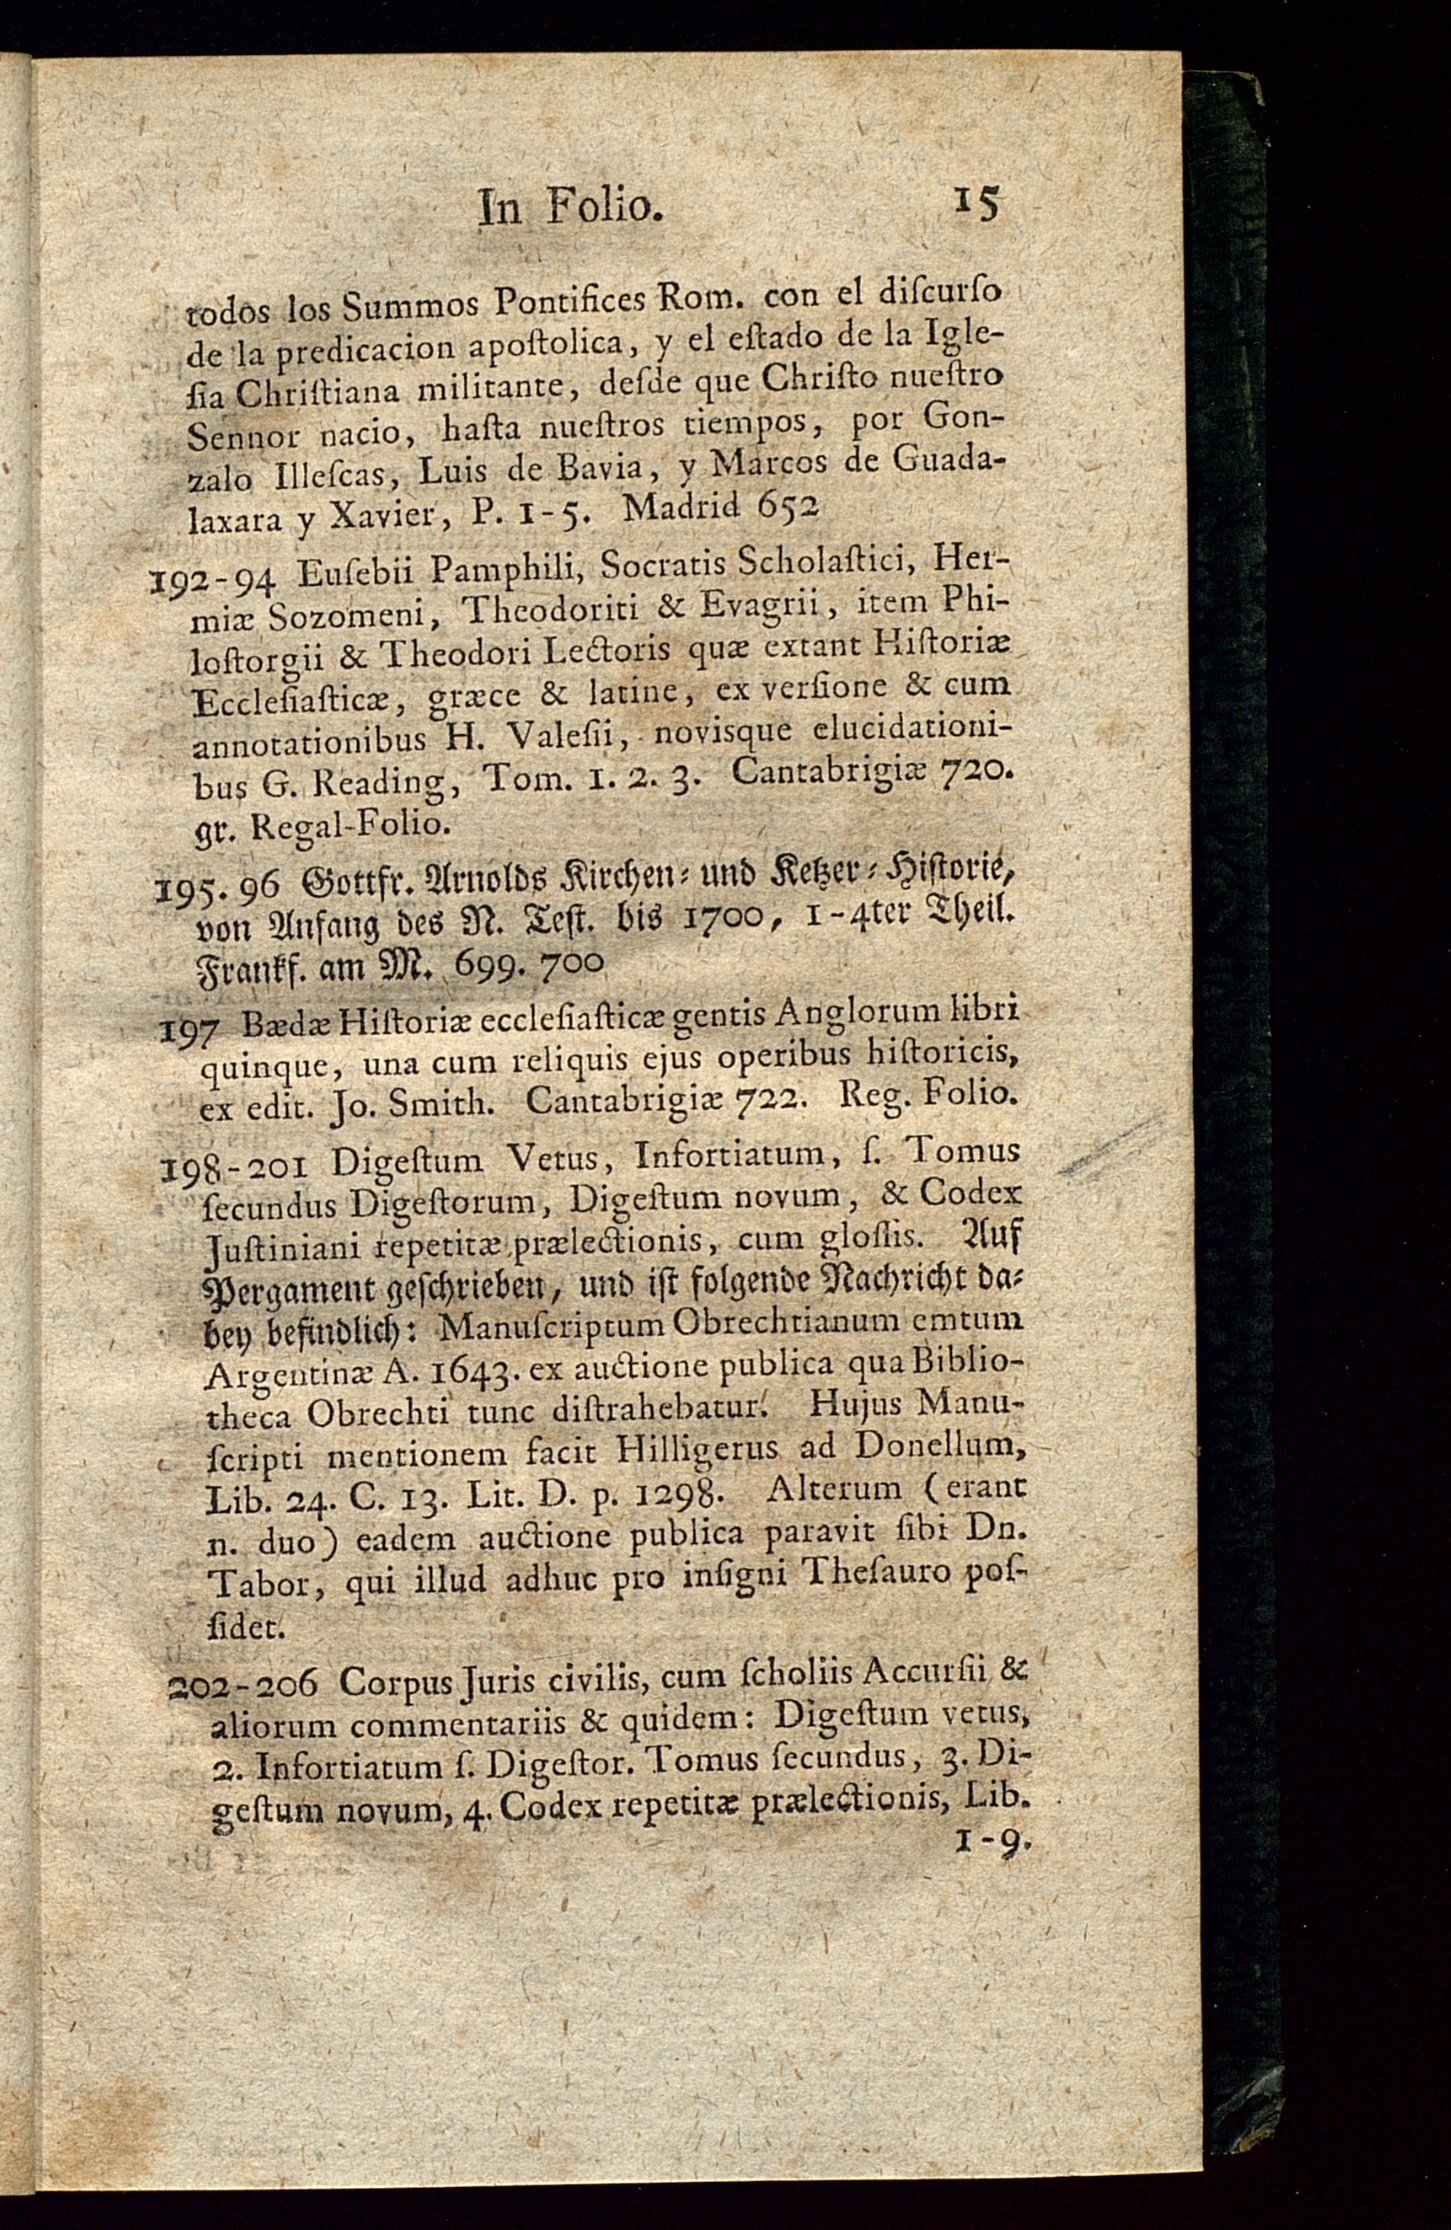 In Folio. 15
todos los Summos Pontifices Rom. con el diſcurſo
de la predicacion apoſtolica, y el eſtado de la Igle-
ſia Chriſtiana militante, deſde que Chriſto nueſtro
Sennor nacio, haſta nueſtros tiempos, por Gon-
zalo Illeſcas, Luis de Bavia, y Marcos de Guada-
laxara y Xavier, P. 1-5. Madrid 652
192-94 Euſebii Pamphili, Socratis Scholaſtici, Her-
miæ Sozomeni, Theodoriti & Evagrii, item Phi-
loſtorgii & Theodori Lectoris quæ extant Hiſtoriæ
Eccleſiaſticæ, græce & latine, ex verſione & cum
annotationibus H. Valeſii, novisque elucidationi-
bus G. Reading, Tom. 1. 2. 3. Cantabrigiæ 720.
gr. Regal-Folio.
195. 96 Gottfr. Arnolds Kirchen⸗ und Ketzer⸗Hiſtorie,
von Anfang des N. Teſt. bis 1700, 1-4ter Theil.
Frankf. am M. 699. 700
197 Bædæ Hiſtoriæ eccleſiaſticæ gentis Anglorum libri
quinque, una cum reliquis ejus operibus hiſtoricis,
ex edit. Jo. Smith. Cantabrigiæ 722. Reg. Folio.
198-201 Digeſtum Vetus, Infortiatum, ſ. Tomus
ſecundus Digeſtorum, Digeſtum novum, & Codex
Juſtiniani repetitæ prælectionis, cum gloſſis. Auf
Pergament geſchrieben, und iſt folgende Nachricht da⸗
bey befindlich: Manuſcriptum Obrechtianum emtum
Argentinæ A. 1643. ex auctione publica qua Biblio-
theca Obrechti tunc diſtrahebatur. Hujus Manu-
ſcripti mentionem facit Hilligerus ad Donellum,
Lib. 24. C. 13. Lit. D. p. 1298. Alterum (erant
n. duo) eadem auctione publica paravit ſibi Dn.
Tabor, qui illud adhuc pro inſigni Theſauro poſ-
ſidet.
202-206 Corpus Juris civilis, cum ſcholiis Accurſii &
aliorum commentariis & quidem: Digeſtum vetus,
2. Infortiatum ſ. Digeſtor. Tomus ſecundus, 3. Di-
geſtum novum, 4. Codex repetitæ prælectionis, Lib.
1-9.